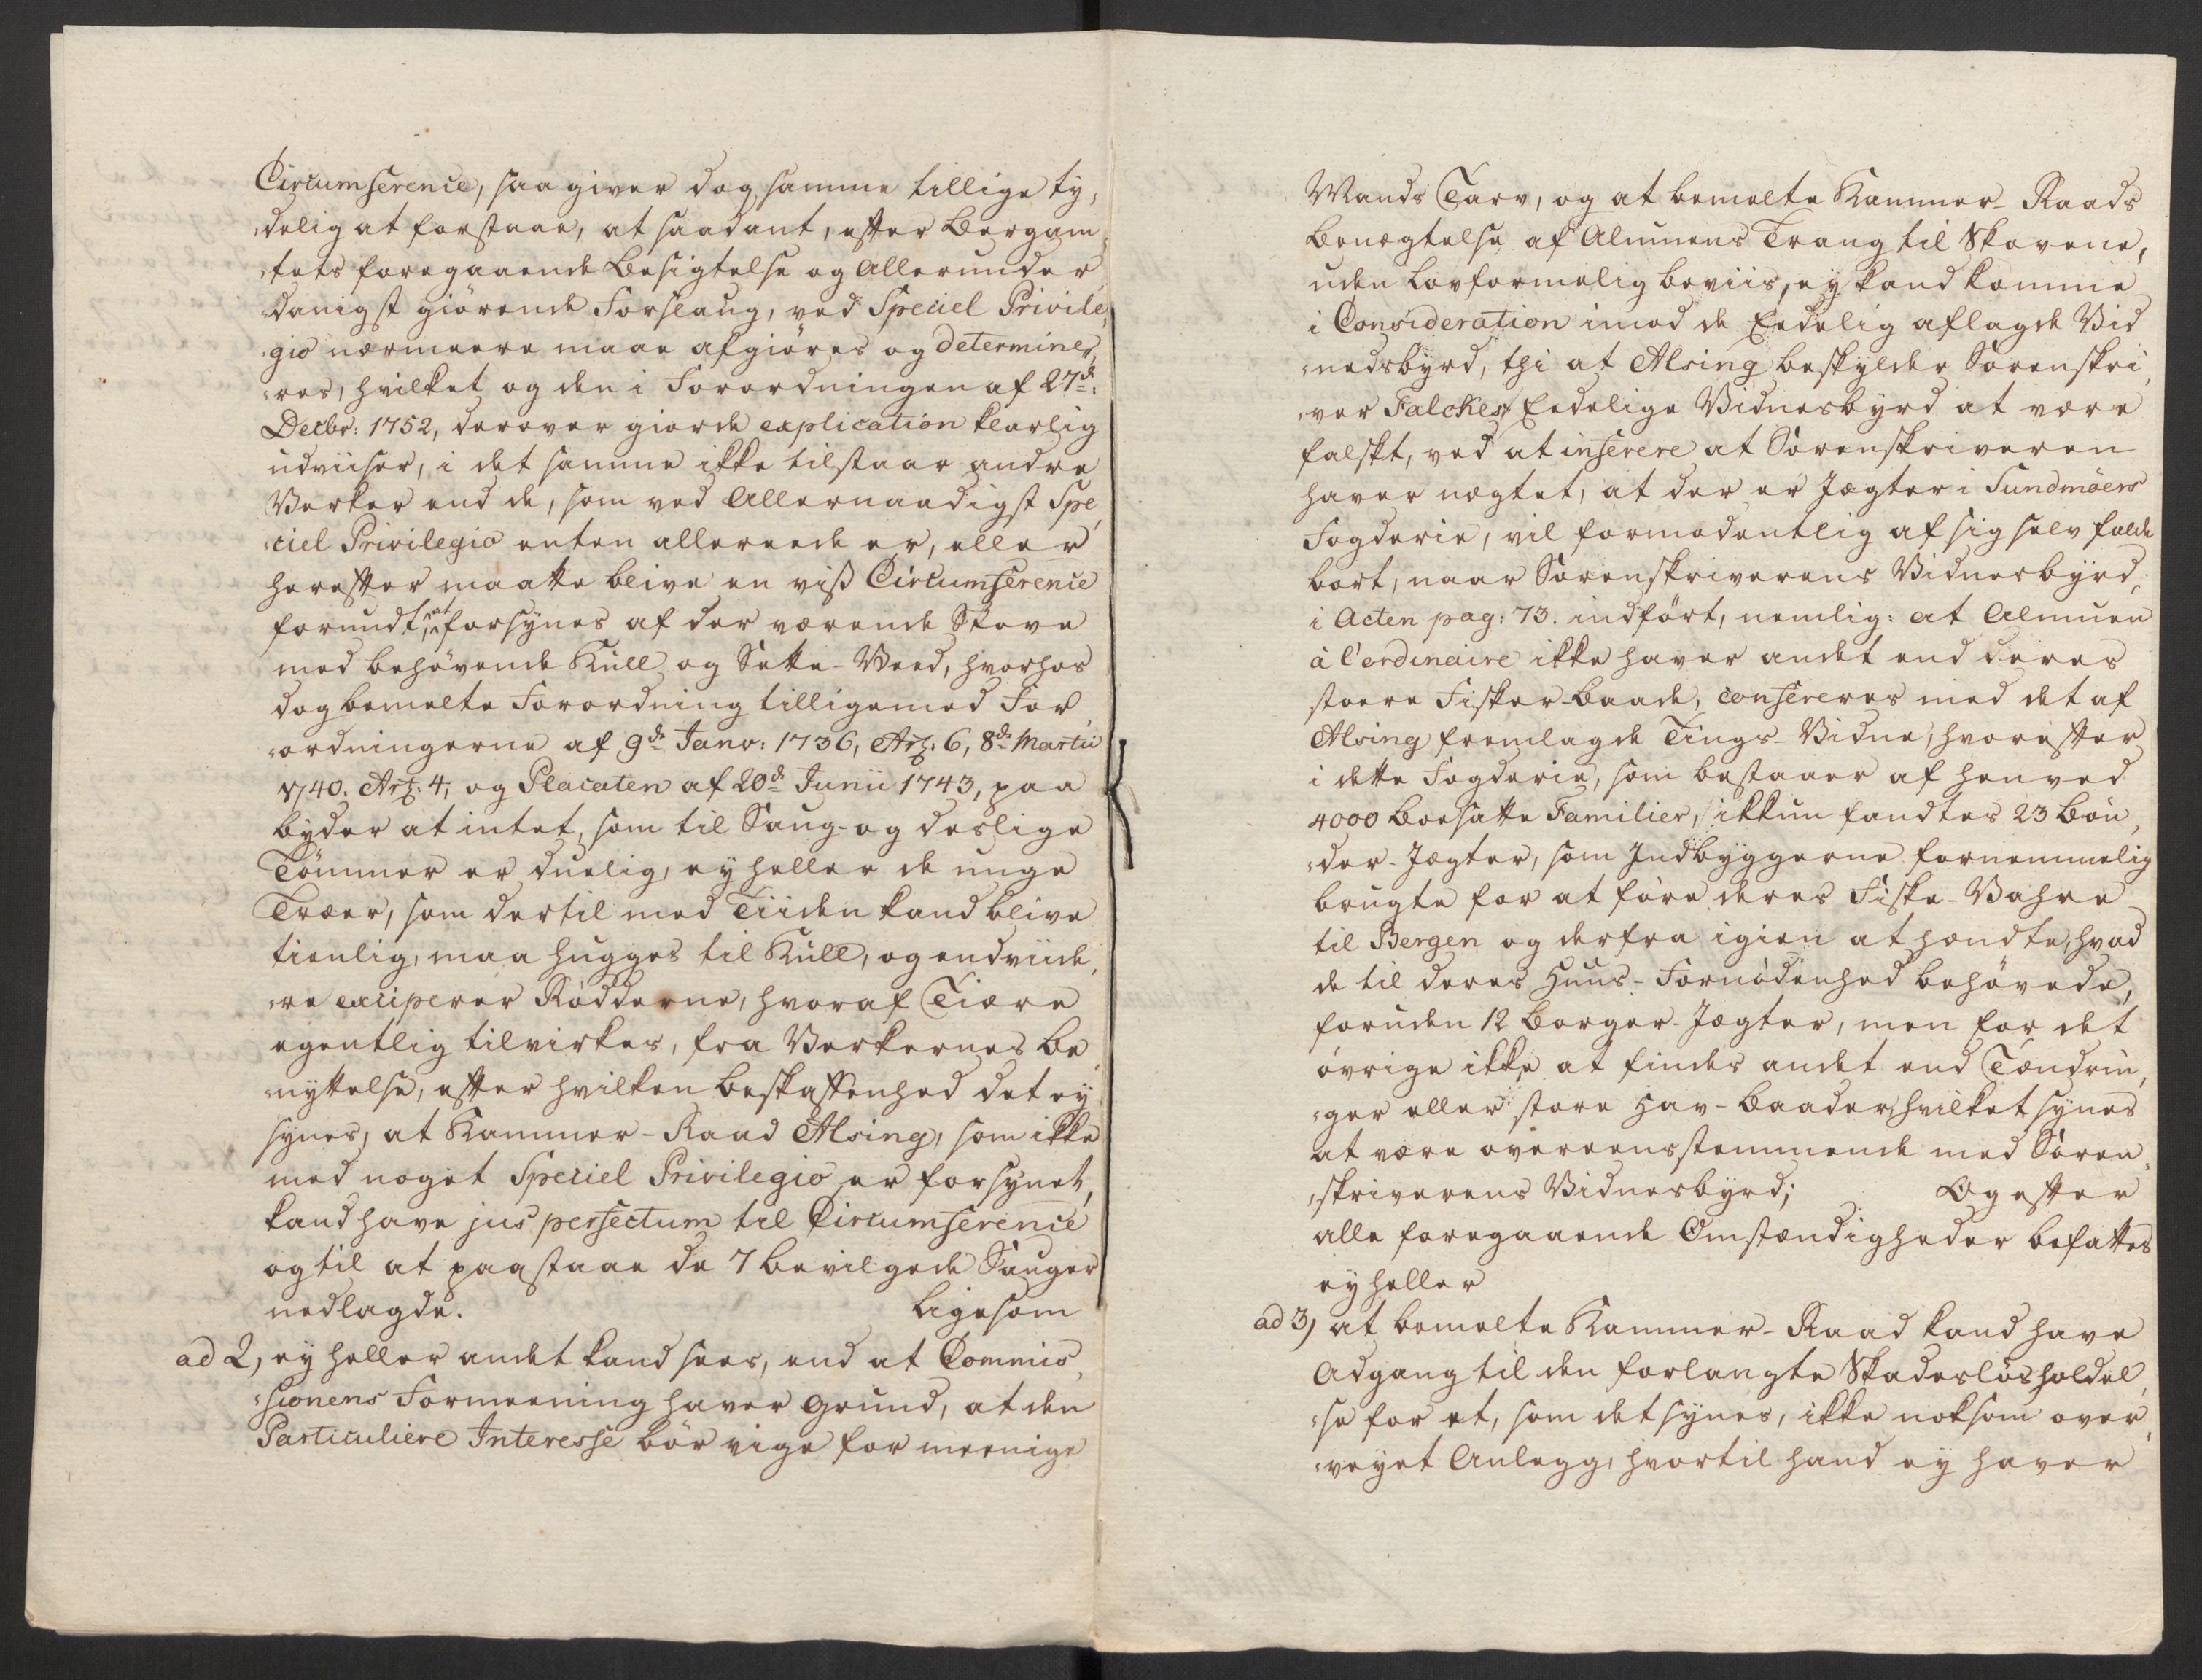 Circumference, saa giver dog samme tillige ty,
:delig at forstaae, at saadant, efter Bergam,
:tets foregaaende Besigtelse og Allerunder,
:danigst giørende Forslaug, ved Speciel Privile,
:gio nærmeere maae afgiøres og determine,
:res, hvilket og den i Forordningen af 27de:
Decbr: 1752, derover giorde explication klarlig
udviiser, i det samme ikke tilstaar andre
Verker end de, som ved Allernaadigst Spe,
:ciel Privilegio enten allereede er, eller
herefter maatte blive en viss Circumference
forundt, at forsynes af der værende Skove
med behøvende Kull og Sette-Veed, hvorhos
dog bemelte Forordning tilligemed For,
:ordningerne af 9de Janv: 1736, Art: 6, 8de Martii
1740. Art: 4, og Placaten af 20de Junii 1743, paa
byder at intet, som til Saug- og deslige
Tømmer er duelig, ey heller de unge
Træer, som dertil med Tiiden kand blive
tienlig, maa hugges til Kull, og endviide,
:re exciperer Rødderne, hvoraf Tiære
egentlig tilvirkes, fra Verkernes be,
:nyttelse, efter hvilken beskaffenhed det ey
synes, at Kammer-Raad Alsing, som ikke
med noget Speciel Privilegio er forsynet,
kand have jus perfectum til Circumference
og til at paastaae de 7 bevilgede Sauger
nedlagde. Ligesom
ad 2, ey heller andet kand sees, end at Commis,
:sionens Formeening haver Grund, at den
Particuliere Interesse bør vige for meenige
Mands Tarv, og at bemelte Kammer-Raads
Benegtelse af Almuens Trang til Skovene,
uden Lovformelig beviis, ey kand komme
i Consideration imod de Eedelig aflagde Vid
:nedsbyrd, thi at Alsing beskylder Sorenskri,
:ver Falckes Eedelige Vidnesbyrd at være
falskt, ved at inferere at Sorenskriveren
haver nægtet, at der er Jægter i Sundmöers
Fogderie, vil formodentlig af sig selv falde
bort, naar Sorenskriverens Vidnesbyrd,
i Acten pag: 73. indført, nemlig: at Almuen
à l'ordinaire ikke haver andet end deres
stoere Fisker-Baade, confereres med det af
Alsing fremlagde Tings-Vidne, hvorefter
i dette Fogderie, som bestaaer af henved
4000 Boesatte Familier, ikkun fandtes 23 Bön,
:der-Jægter, som Indbyggerne fornemmelig
brugte for at føre deres Fiske-Vahre
til Bergen og derfra igien at hendte, hvad
de til deres Huus-Fornødenhed behøvede,
foruden 12 Borger-Jægter, men for det
øvrige ikke at findes andet end Tendrin,
:ger eller store Hav-Baader, hvilket synes
at være overeensstemmende med Soren,
:skriverens Vidnesbyrd; Og efter
alle foregaaende Omstændigheder befattes
ey heller
ad 3, at bemelte Kammer-Raad kand have
Adgang til den forlangte Skadesløsholdel,
:se for et, som det synes, ikke noksom over,
:veyet Anlegg, hvortil hand ey haver